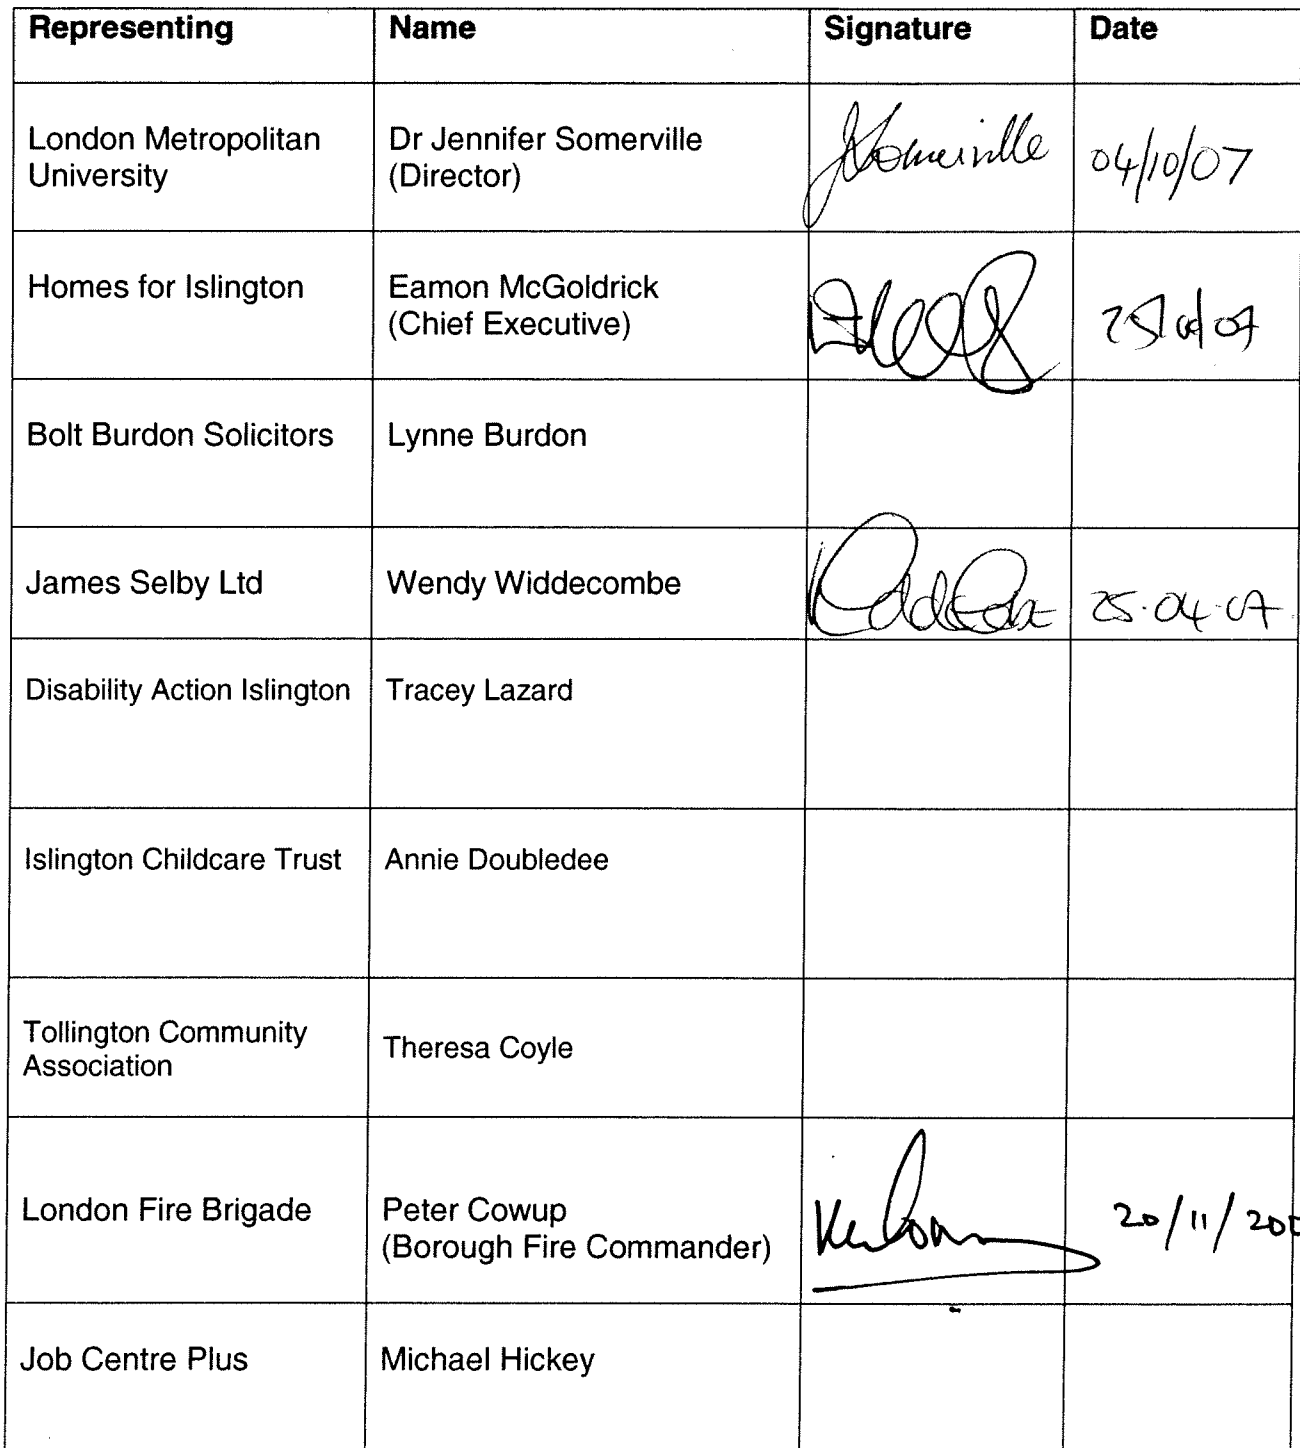 Representing Name Signature Date
London Metropolitan University Dr Jennifer Somerville (Director) JSomerville 04/10/07
Homes for Islington Eamon McGoldrick (Chief Executive)
Bolt Burdon Solicitors Lynne Burdon
James Selby Ltd Wendy Widdecombe 25.04.07
Disability Action Islington Tracey Lazard
Islington Childcare Trust Annie Doubledee
Tollington Community Association Theresa Coyle
London Fire Brigade Peter Cowup (Borough Fire Commander) 20/11/200
Job Centre Plus Michael Hickey